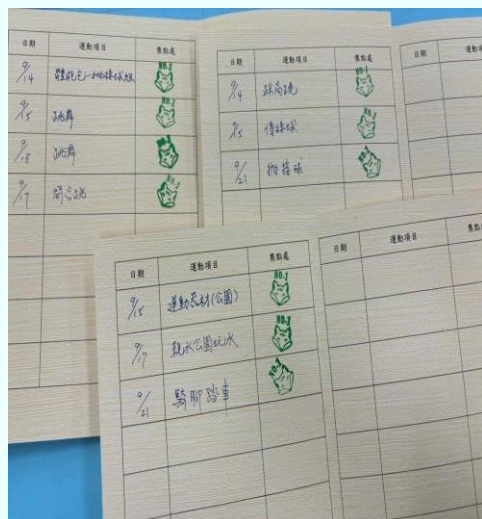 日期 運動項目 集點處
9/14
9/15 跳舞 NO.1
9/18 跳舞
9/17 開合跳 NO.1
日期 運動項目 集點處
9/14 跳高跳 NO.1
9/15 傳接球 NO.1
9/21 拋接球 NO.1
日期 運動項
日期 運動項目 集點處
9/15 運動器材(公園) NO.1
9/17 親水公園玩水 NO.1
9/21 騎腳踏車 NO.1
日期 運動項目 集點